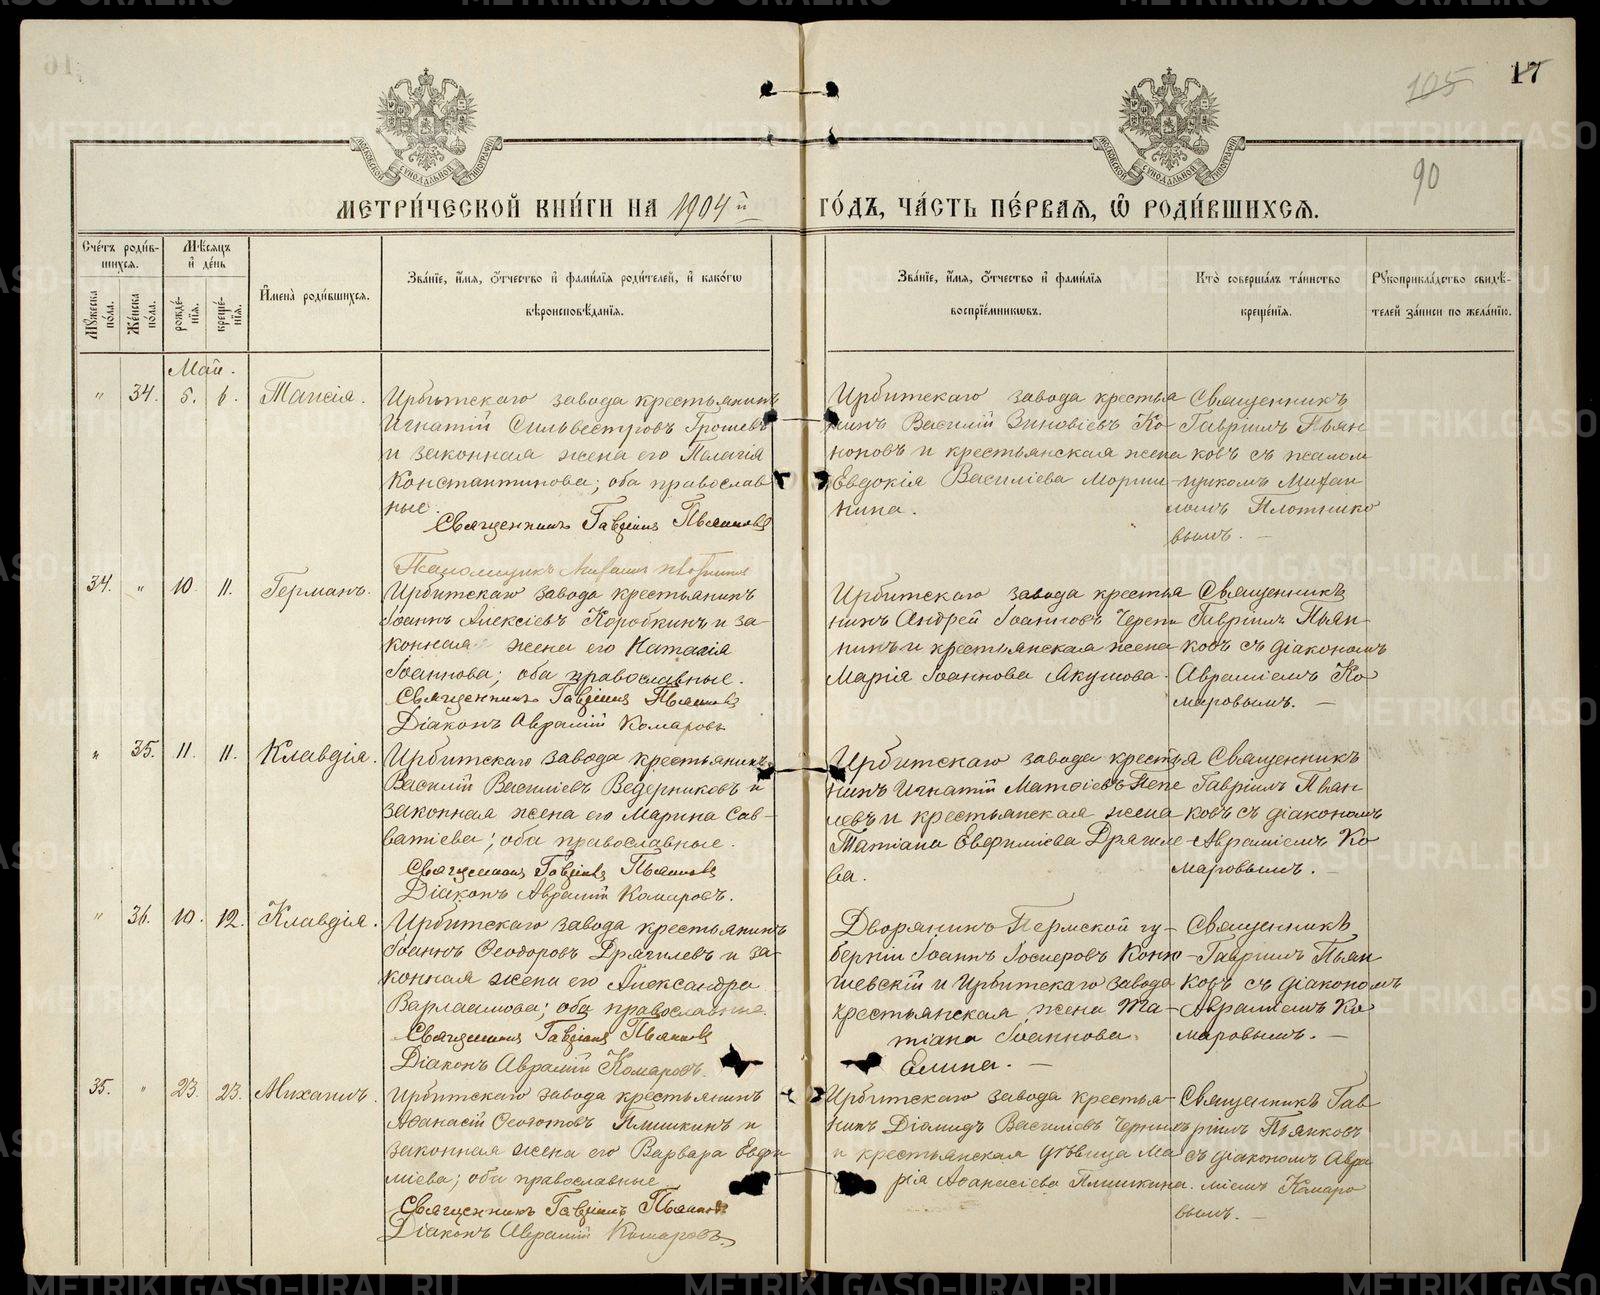 17
105
90
МЕТРИ́ЧЕСКОЙ КНИ́ГИ НА 1904й ГО́ДЪ, ЧА́СТЬ ПЕ́РВАЯ, Ѽ РОДИ́ВШИХСЯ.
Сче́тъ роди́в-
шихся.
Мꙋ́жеска по́ла.
Же́нска по́ла.
Мѣ́сяцъ и҆ де́нь
рожде́-
нїя.
креще́-
нїя.
И҆мена̀ роди́вшихся.
Зва́нїе, и҆́мя, ѻ҆́тчество и҆ фами́лїя роди́телей, и҆ како́гѡ
вѣроисповѣ́данїя.
Зва́нїе, и҆́мя, ѻ҆́тчество и҆ фами́лїя
воспрїе́мниковъ.
Кто̀ соверша́лъ та́инство
креще́нїя.
Рꙋкоприкла́дство свидѣ́-
телей за́писи по жела́нїю.
Май.
" 34. 5. 6. Таисія.
Ирбитскаго завода крестьянинъ
Игнатій Сильвестровъ Грошевъ
и законная жена его Пелагія
Константинова; оба православ
ные.
Священникъ Гавріилъ Пьянковъ
Псаломщикъ Михаилъ Плотниковъ
Ирбитскаго завода крестья
нинъ Василій Зиновіевъ Ко
ноновъ и крестьянская жена
Евдокія Василіева Морши-
нина.
Священникъ
Гавріилъ Пьян
ковъ съ псалом
щикомъ Михаи
ломъ Плотнико
вымъ. —
34. " 10. 11. Германъ.
Ирбитскаго завода крестьянинъ
Іоаннъ Алексіевъ Коробкинъ и за-
конная жена его Наталія
Іоаннова; оба православные.
Священникъ Гавріилъ Пьянковъ
Діаконъ Авраамій Комаровъ
Ирбитскаго завода крестья
нинъ Андрей Іоанновъ Черепа
нинъ и крестьянская жена
Марія Іоаннова Акулова.
Священникъ
Гавріилъ Пьян-
ковъ съ діакономъ
Авраміемъ Ко
маровымъ. —
" 35. 11. 11. Клавдія.
Ирбитскаго завода крестьянинъ
Василій Василіевъ Ведерниковъ и
законная жена его Марина Сав-
ватіева; оба православные.
Священникъ Гавріилъ Пьянковъ
Діаконъ Авраамій Комаровъ.
Ирбитскаго завода крестья
нинъ Игнатій Матѳіевъ Пепе
левъ и крестьянская жена
Татіана Евфиміева Драгиле-
ва.
Священникъ
Гавріилъ Пьян
ковъ съ діакономъ
Авраміемъ Ко
маровымъ. —
" 36. 10. 12. Клавдія.
Ирбитскаго завода крестьянинъ
Іоаннъ Ѳеодоровъ Драгилевъ и за-
конная жена его Александра
Варлаамова; оба православные.
Священникъ Гавріилъ Пьянковъ
Діаконъ Авраамій Комаровъ.
Дворянинъ Пермской гу-
берніи Іоаннъ
и Ирбитскаго завода
крестьянская жена Та-
тіана Іоаннова
Елина. —
Священникъ
Гавріилъ Пьян
ковъ съ діакономъ
Авраміемъ Ко
маровымъ. —
35. " 23. 23. Михаилъ.
Ирбитскаго завода крестьянинъ
Аѳанасій Ѳеодотовъ Плишкинъ и
законная жена его Варвара Евфи
міева; оба православные
Священникъ Гавріилъ Пьянковъ
Діаконъ Авраамій Комаровъ.
Ирбитскаго завода крестья-
нинъ Діамидъ Василіевъ
и крестьянская дѣвица Ма
рія Аѳанасіева Плишкина.
Священникъ Гав-
ріилъ Пьянковъ
съ діакономъ Авра
міемъ Комаро
вымъ. —
METRIKI.GASO-URAL.RU